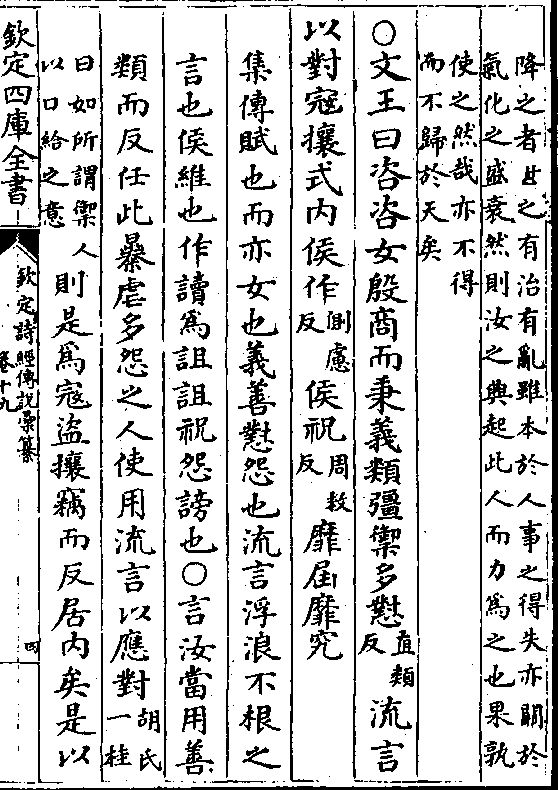 降之者世之有治有亂雖本於人事之得失亦關於
氣化之盛衰然則汝之興起此人而力為之也果孰
使之然哉亦不得
而不歸於天矣
○文王曰咨咨女殷商而秉義類彊禦多懟直類反流言
以對寇攘式内侯作側慮反侯祝周救反靡屆靡究
集傳賦也而亦女也義善懟怨也流言浮浪不根之
言也侯維也作讀為詛詛祝怨謗也○言汝當用善
類而反任此暴虐多怨之人使用流言以應對胡氏一桂
曰如所謂禦人以口給之意則是為寇盜攘竊而反居内矣是以
欽定四庫全書
欽定詩經傳說彙纂
卷十九
四